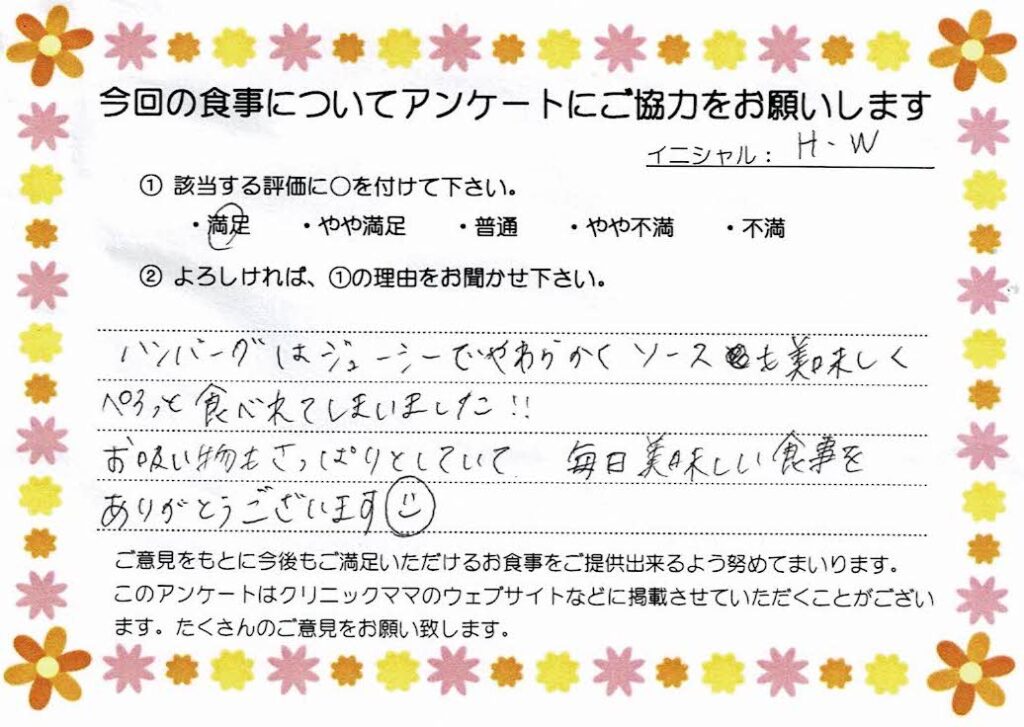 今回の食事についてアンケートにご協力をお願いします
イニシャル： H・W
① 該当する評価に〇を付けて下さい。
・満足 ・やや満足 ・普通 ・やや不満 ・不満
② よろしければ、①の理由をお聞かせ下さい。
ハンバーグはジューシーでやわらかくソースも美味しく
ペろっと食べれてしまいました!!
お吸い物もさっぱりとしていて 毎日美味しい食事を
ありがとうございます
ご意見をもとに今後もご満足いただけるお食事をご提供出来るよう努めてまいります。
このアンケートはクリニックママのウェブサイトなどに掲載させていただくことがござい
ます。たくさんのご意見をお願い致します。